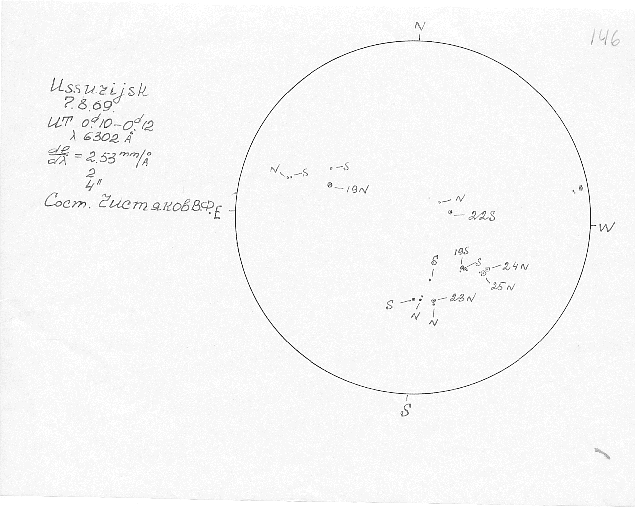 146
Ussurijsk
7.8.69.
UT 0ᵈ10-0ᵈ12
λ 6302 Å
dl/dλ = 2.53 mm/Å
2
4"
Сост. Чистяков В.Ф.
N
E
W
S
N S
S
19N
N
22S
S
19S
S
24N
25N
S
N
N
23N